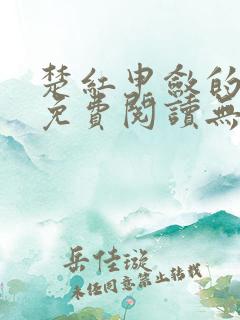 楚红申敘的
免費閱讀無
岳佳璇
未经同意禁止转载